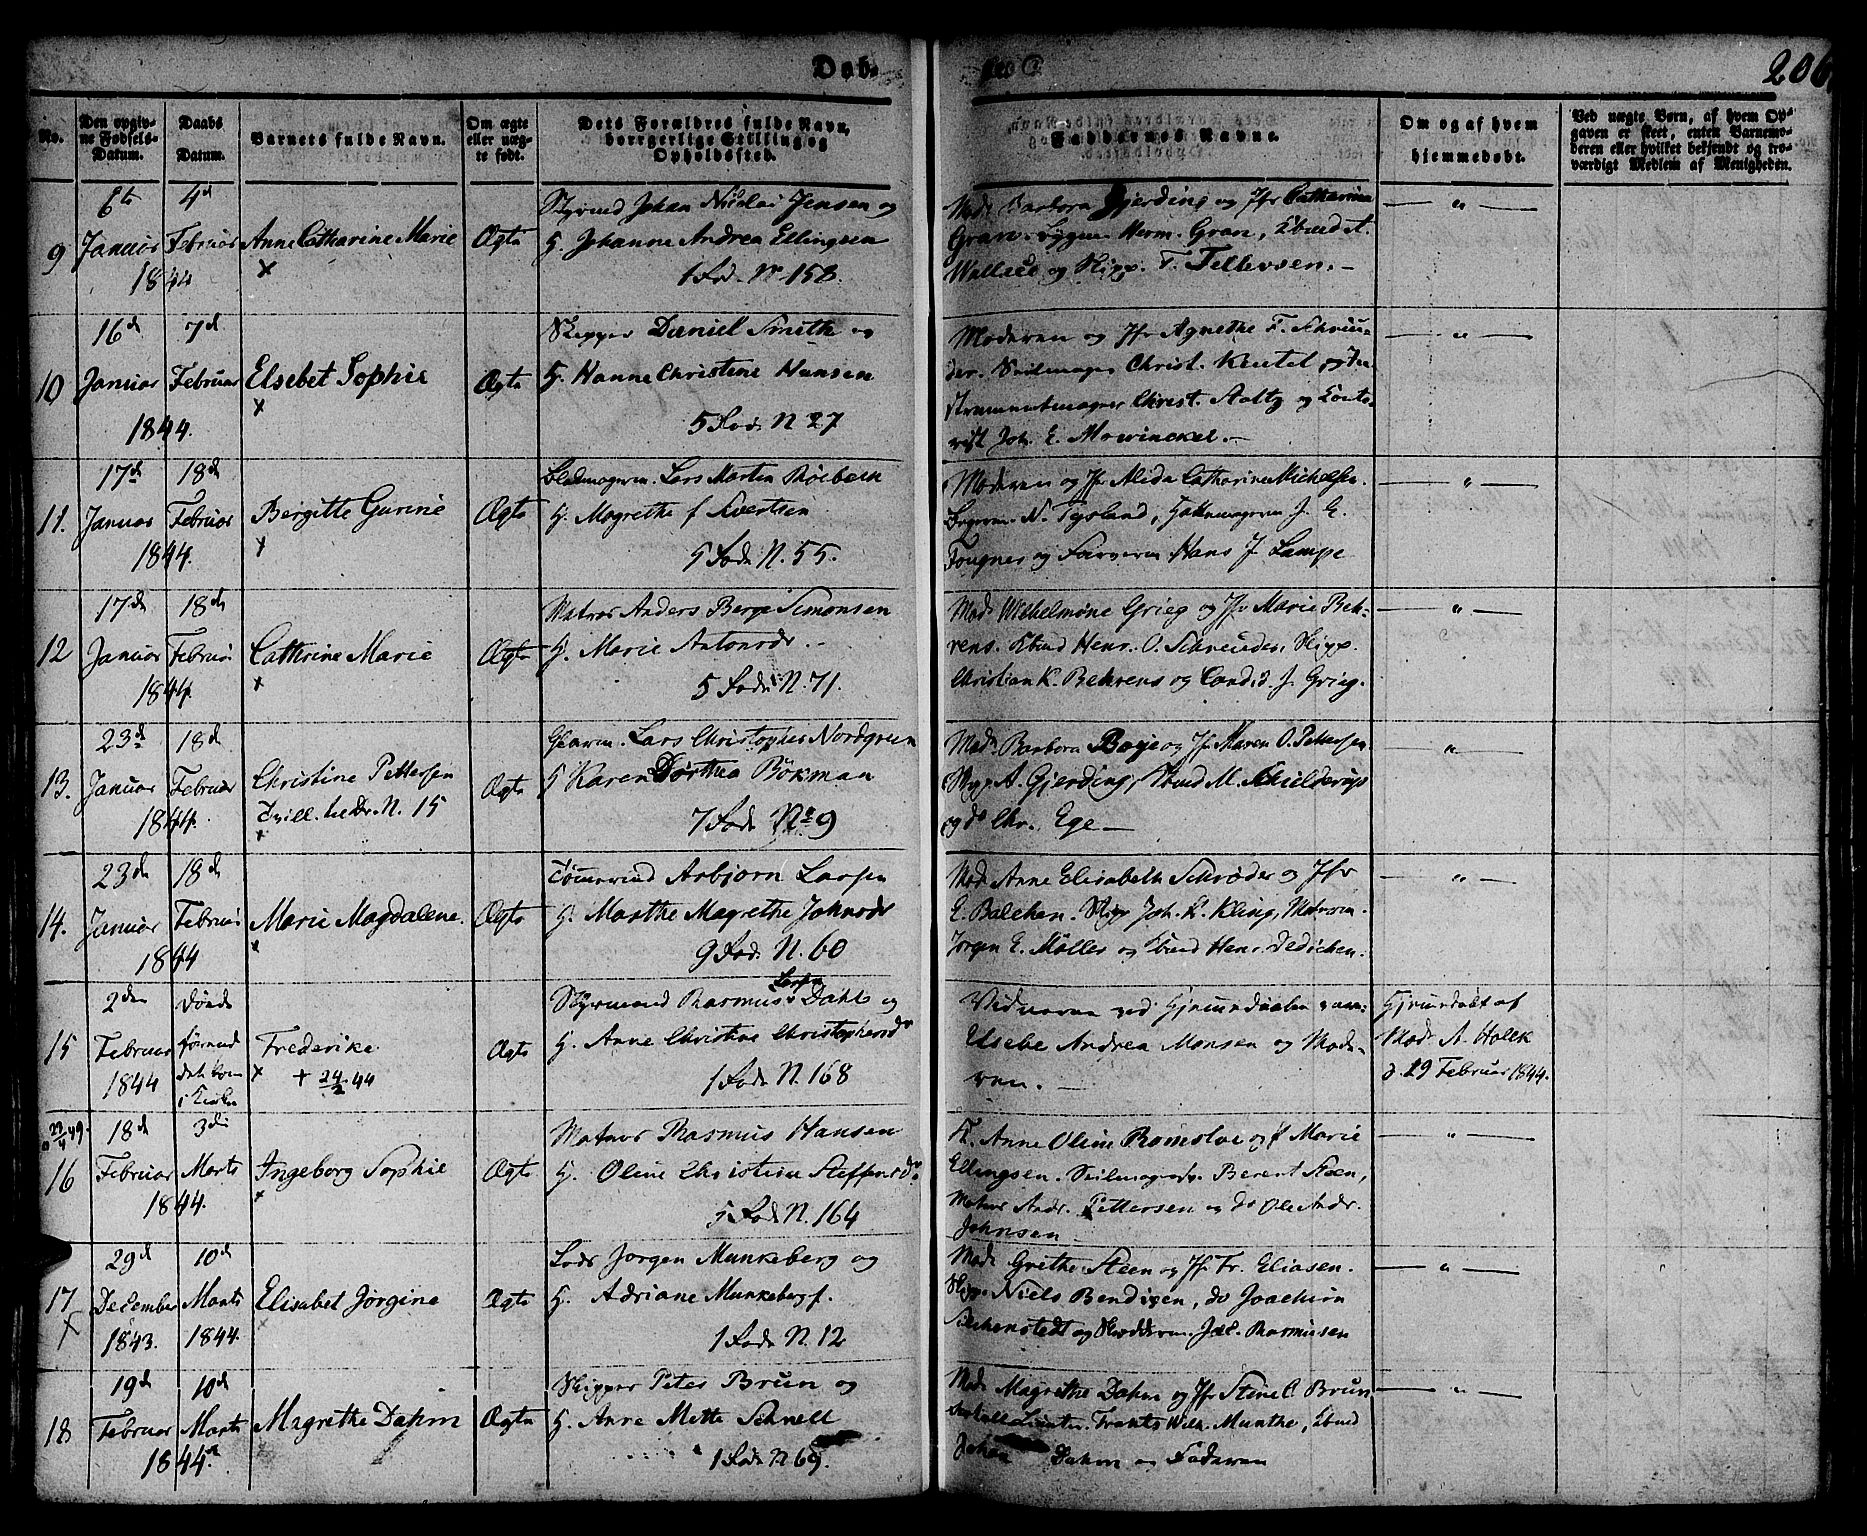 Døb.
206.
No.
Den opgiv-
ne Fødsels-
Datum.
Daabs
Datum.
Barnets fulde Navn.
Om ægte
eller uæg-
te født.
Dets Forældres fulde Navn,
borgerlige Stilling og
Opholdssted.
Faddernes Navne.
Om og af hvem
hjemmedøbt.
Ved uægte Børn, af hvem Op-
gaven er skeet, enten Barnemo-
deren eller hvilket bekjendt og tro-
værdigt Medlem af Menigheden.
9
6te
Januar
1844
4d
Februar
Anne Catharine Marie
x
Ægte
Styrmd Johan Nicolai Jensen og
H. Johanne Andrea Ellingsen
1 Fod. No 158.
Mad. Barbora Gjerding og Jfr Catharina
Gran. Herm. Gran,
Wallace og Skipp. T. Tellevsen. -
— " —
10
16d
Januar
1844.
7d
Februar
Elsebet Sophie
x
Ægte
Skipper Daniel Smith og
H. Hanne Christine Hansen
5 Fod. N 27
Moderen og Jfr Agnethe F. Schreu-
der. Seilmager Christ. Keutel og In-
strumentmager Christ. og Conto-
rist Joh. E. Mowinckel. -
— " —
11.
17d
Januar
1844.
18d
Februar
Bergitte Gurine
x
Ægte
Lars Martin
H. Magrethe f Evertsen
5 Fod. N. 55.
Moderen og Jfr Alida Catharina Michelsen.
N. Tysland, J. E.
Fougner og Farveren Hans J. Lampe
— " —
12
17de
Januar
1844.
18de
Februar
Cathrine Marie
x
Ægte
Matros Anders Berge Simonsen
H. Marie Antonsdr. -
5 Fod. N. 71.
Mad. Wilhelmine Grieg og Jfr Marie Beh-
rens. Henr. O. Schreuder, Skipp.
Christian K. Behrens og Candid. J. Grieg.
— " —
13.
23d
Januar
1844.
18d
Februar
Christine Pettersen
N. 15
x
Ægte
Lars Christopher Nordgreen
H Karen Dorthea Bökman
7 Fod. No 9
Mad. Barbora Boye og Jfr Maren O. Pettersen.
Skipp. A. Gjerding, M. Schilderup
og do Chr. Ege —
— " —
14.
23de
Januar
1844
18d
Februar
Marie Magdalene.
x
Ægte
Tømmermd Asbjørn Larsen
H. Marthe Magrethe Johnsdr
9 Fod. N. 60
Mad. Anne Elisabeth Schrøder og Jfr
E. Balchen. Skipp Joh. L. Kling,
Jørgen E. Møller og Henr. Dedichen.
— " —
15
2den
Februar
1844
Døde
førend
det kom
i Kirken
Frederike
x + 24/2 44
Ægte
Larsen
Styrmand Rasmus Dahls og
H. Anne Christine Christophersdr
1 Fod. N. 168
Vidnerne ved Hjemmedaaben vare:
Elsebe Andrea Monsen og Mode-
ren. —
Hjemmedøbt af
Mad. A. Holck
d. 19 Februar 1844.
16
18d
Februar
1844.
3die
Marts
Ingeborg Sophie
x
Ægte
Matros Rasmus Hansen
H. Oline Christine Steffensdr.
5 Fod. N. 164
K. Anne Oline Romsloe og f Marie
Ellingsen. Berent Steen,
Matros Andr. Pettersen og do Ole Andr.
Johnsen —
— " —
17
x
29d
December
1843.
10d
Marts
1844.
Elisabet Jørgine
x
Ægte
Lods Jørgen Munkeberg og
H. Adriane Munkeberg f.
1 Fod. N. 12
Mad. Grethe Steen og Jfr Fr. Eliasen.
Skipp. Niels Bendixen, do Joachim
Jac. Rasmusen
— " —
18
19d
Februar
1844.
10d
Marts
Magrethe Dahm
Ægte
Skipper Peter Brun og
H. Anne Mette Schnell
1 Fod. N 69.
Mad. Magrethe Dahm og Jfr Stine C. Brun
Frants Wilh. Munthe,
Johan Dahm og Faderen
— " —